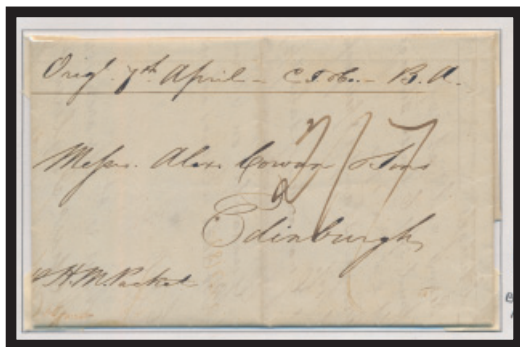 Origl. 7th April - B.A.
Messrs. Alexr. Cowan & Sons
2/7
Edinburgh
H.M. Packet